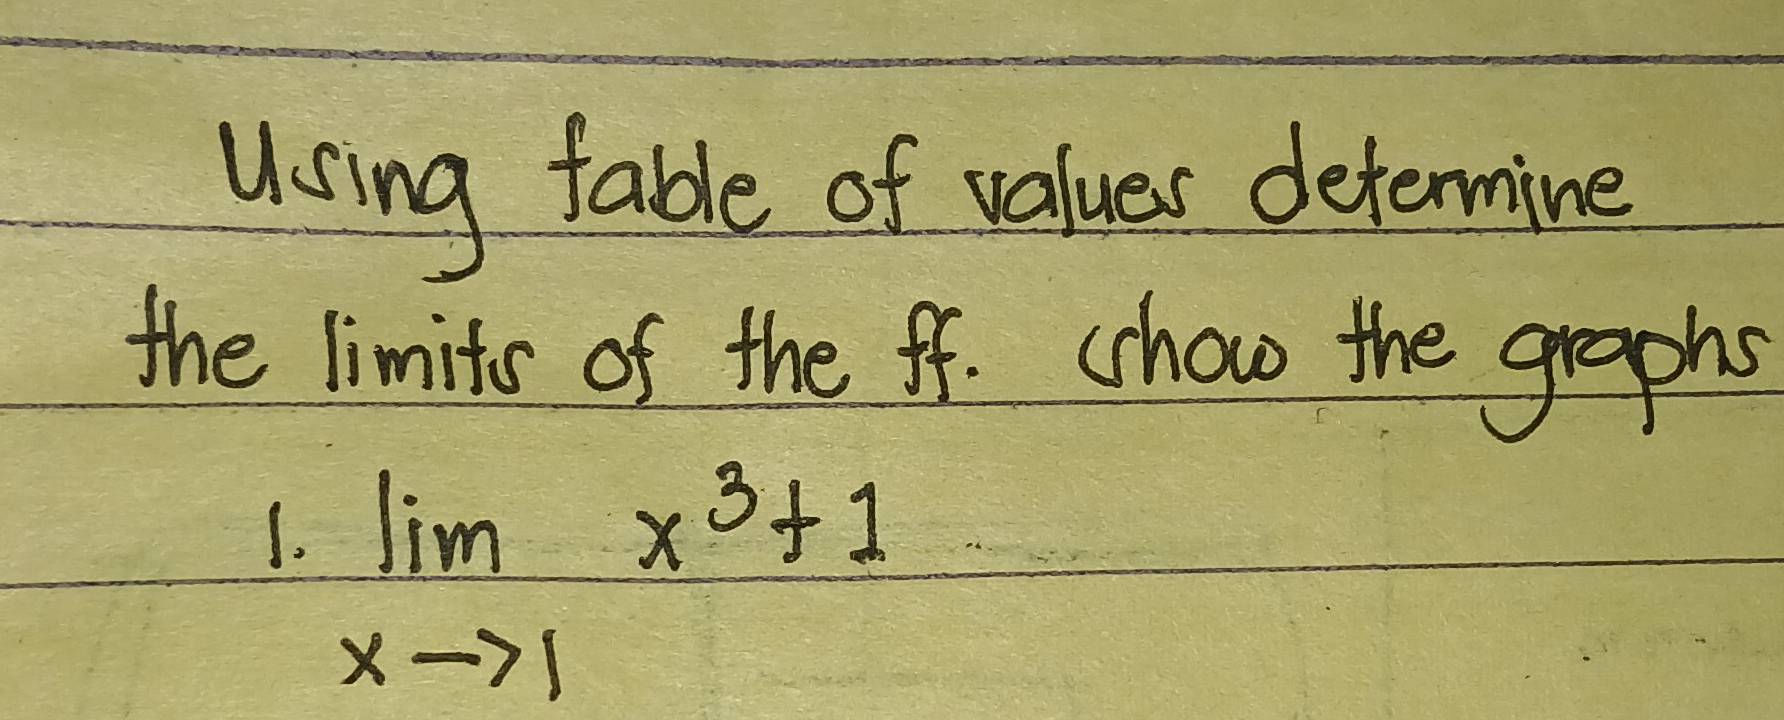 Using table of values determine
the limits of the ff. show the graphs
1. lim x³+1
x->1